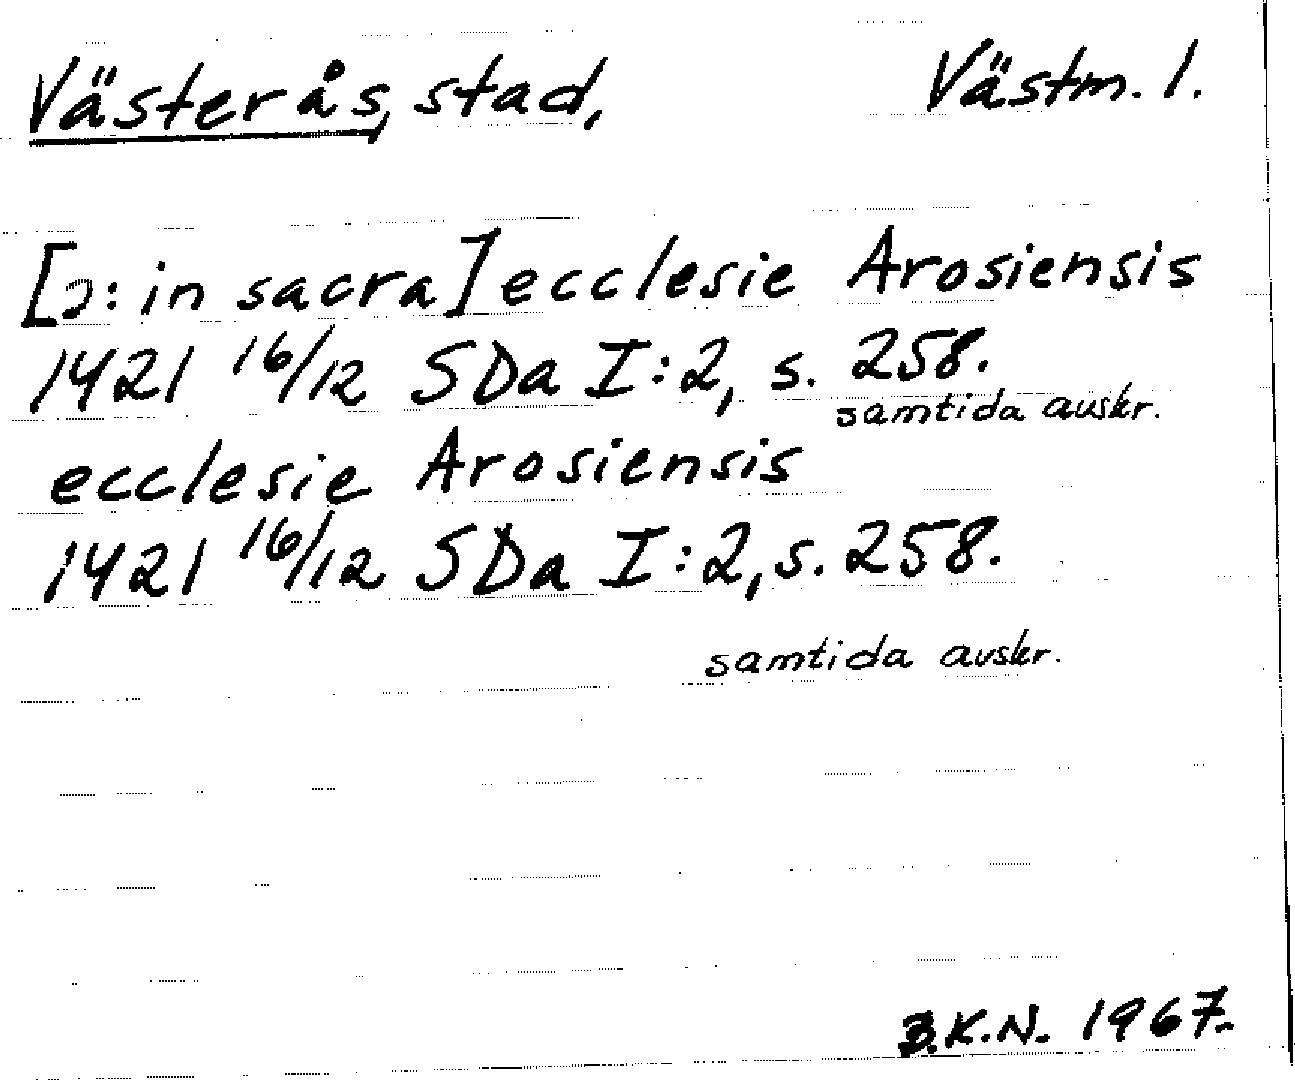 Västerås, stad, Västm. l.
[ɔ: in sacra] ecclesie Arosiensis
1421 16/12 SDa I:2, s. 258.
samtida avskr.
ecclesie Arosiensis
1421 16/12 SDa I:2, s. 258.
samtida avskr.
B.K.N. 1967.